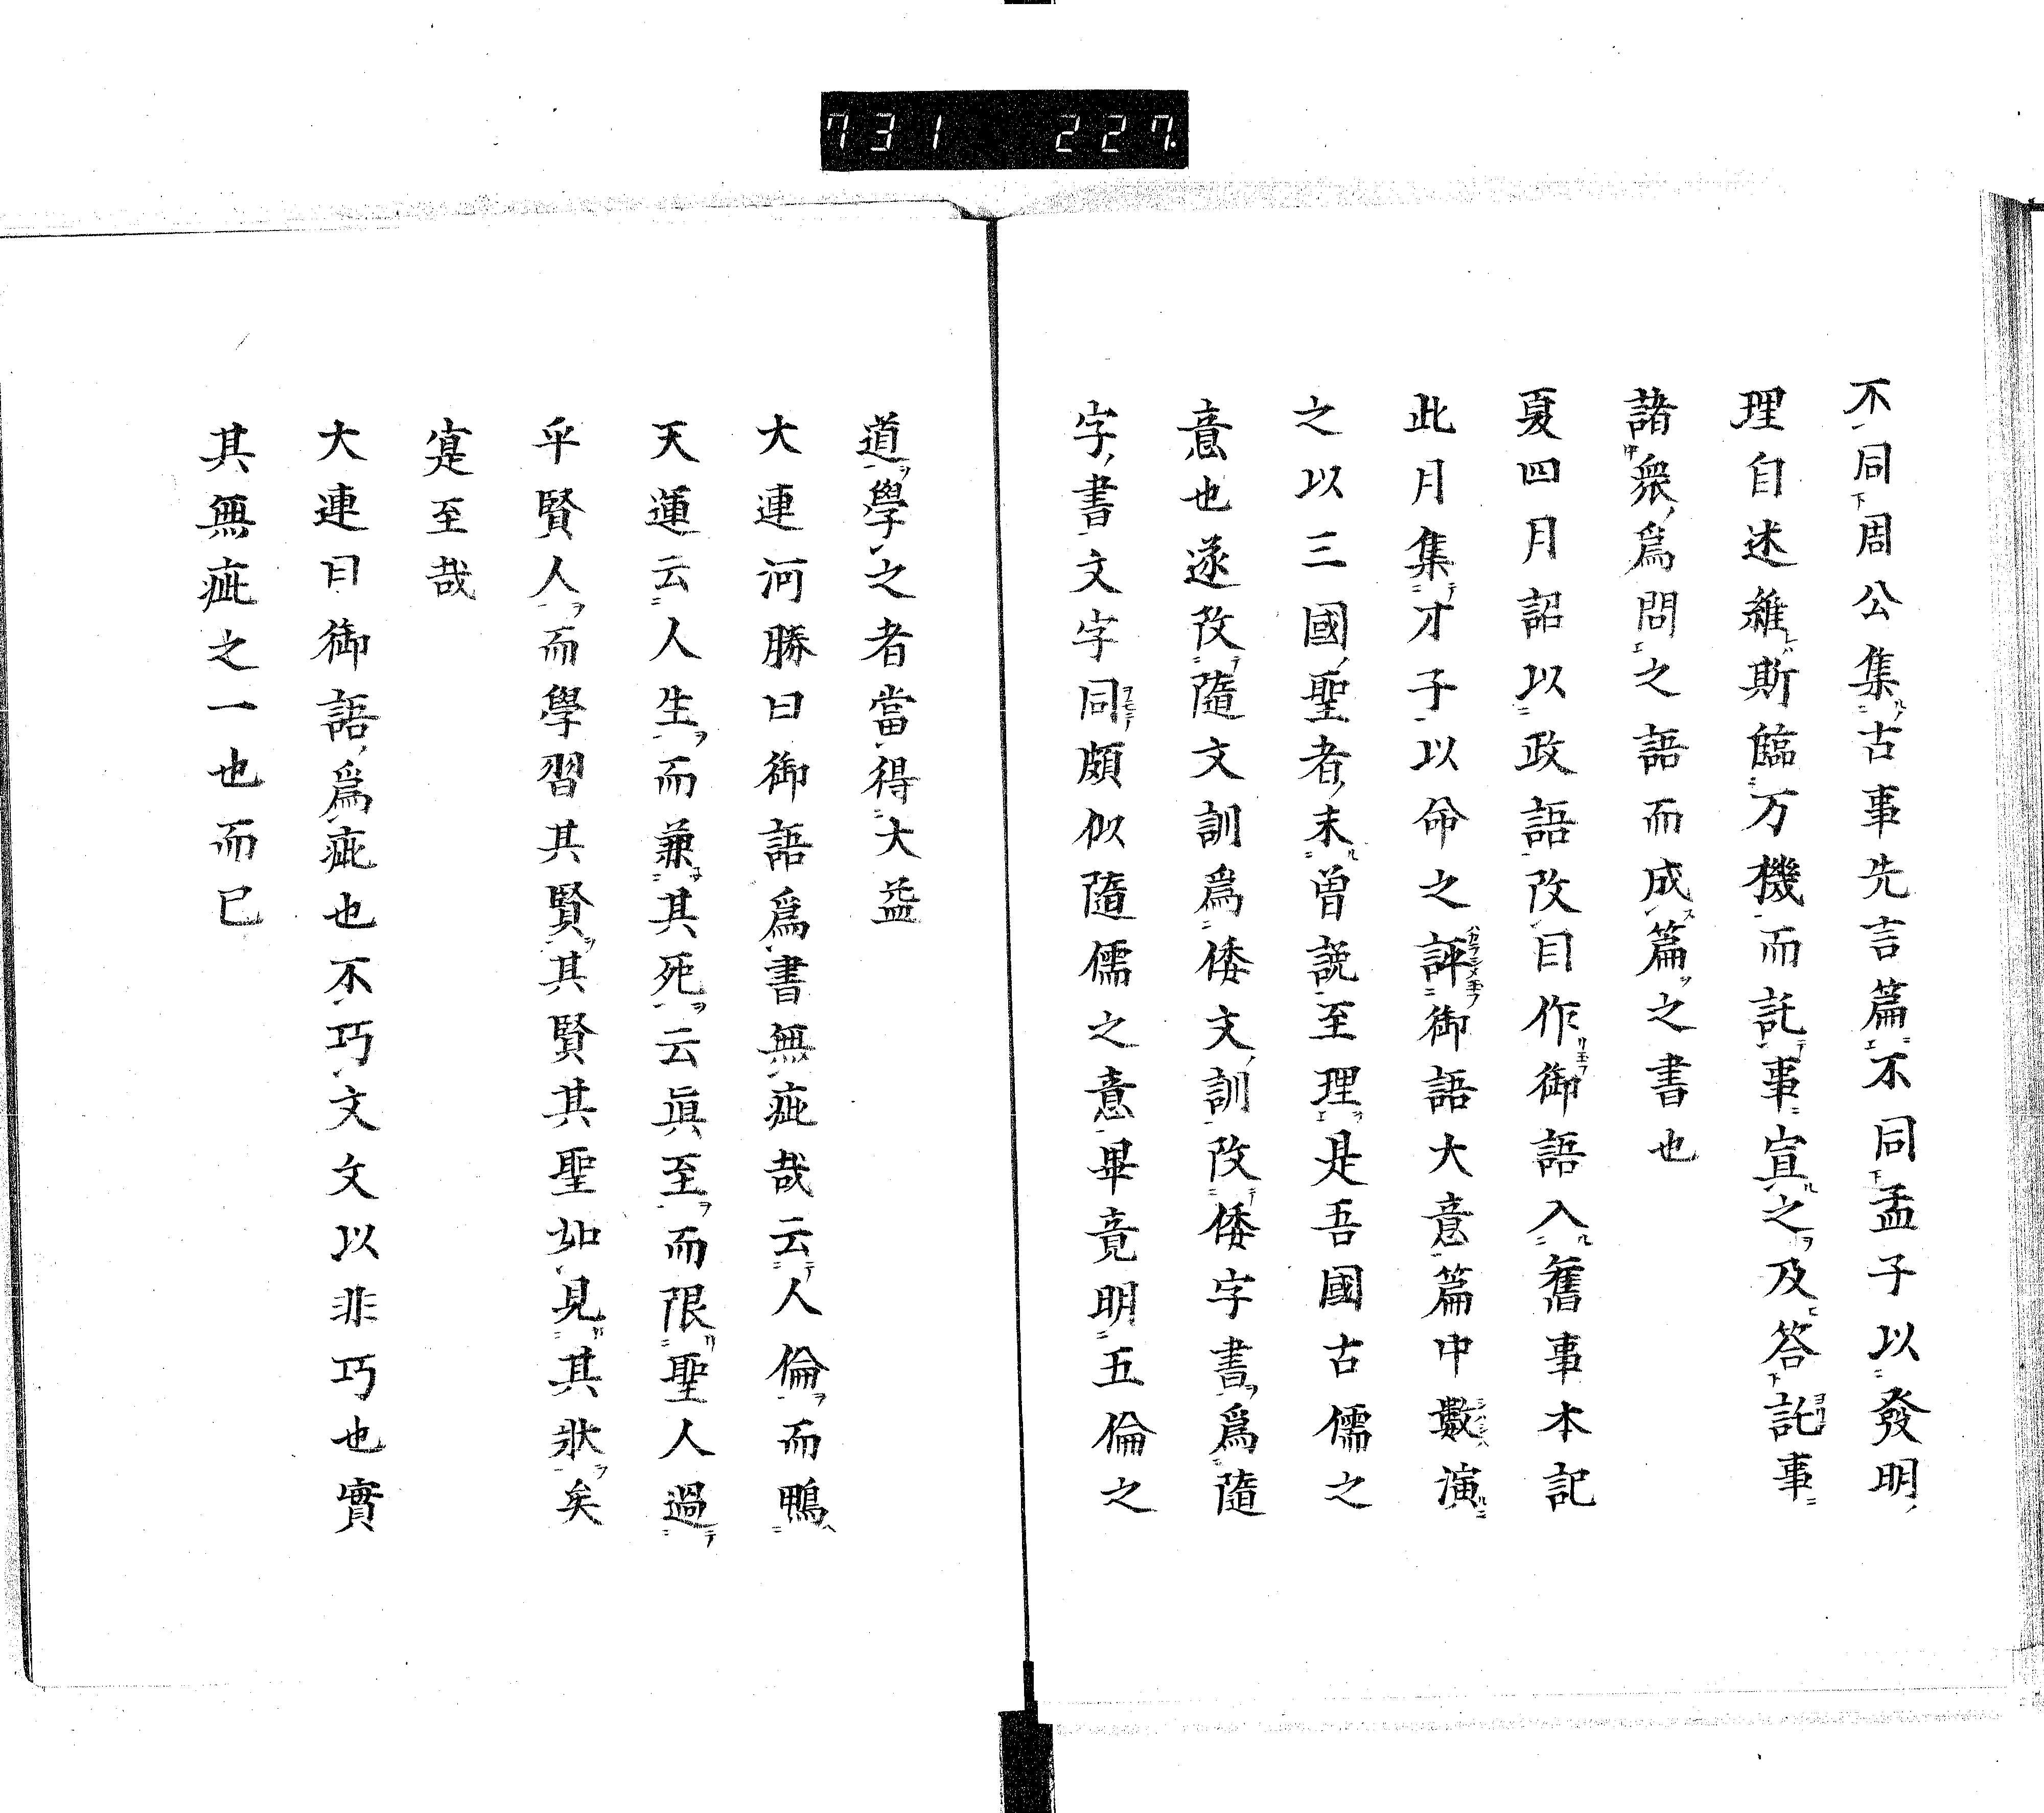 731 227.
不同周公集古事先言篇不同孟子以發明
理自迷雖斯臨万機而託事寘之及答託事
諸衆爲問之語而成篇之書也
夏四月詔以政語改目作御語入舊事本記
此月集才子以命之評御語大意篇中數演
之以三國聖者未曽説至理是吾國古儒之
意也遂改隨文訓爲倭文訓改倭字書爲隨
字書文字同頗似隨儒之意畢竟明五倫之
道學之者當得大益
大連河勝曰御語爲書無疵哉云人倫而鴨
天運云人生而兼其死云眞至而限聖人過
乎賢人而學習其賢其賢其聖如見其狀矣
寔至哉
大連曰御語爲疵也不巧文文以非巧也實
其無疵之一也而已